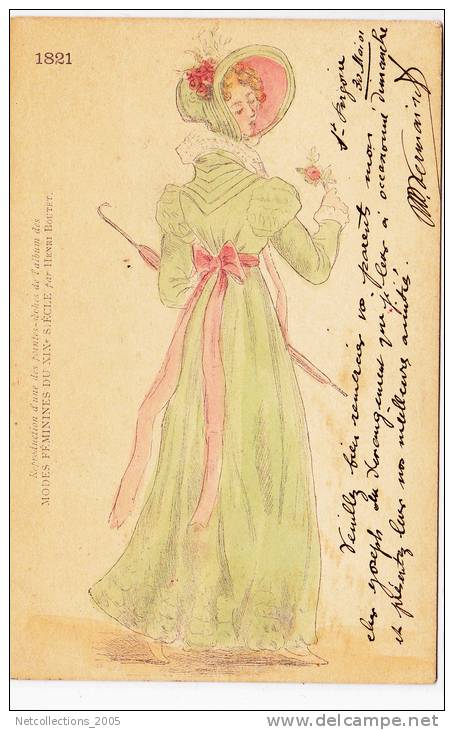 1821
Reproduction d'une des pointes-sèches de l'album des
MODES FÉMININES DU XIXe SIÈCLE par HENRI BOUTET.
St
30 Mai 01
Veuillez bien remercier vos parents mon
cher Joseph du derangement que je leur ai occasionné dimanche
et présentez leur nos meilleures amitiés.
Netcollections_2005
delcampe.net